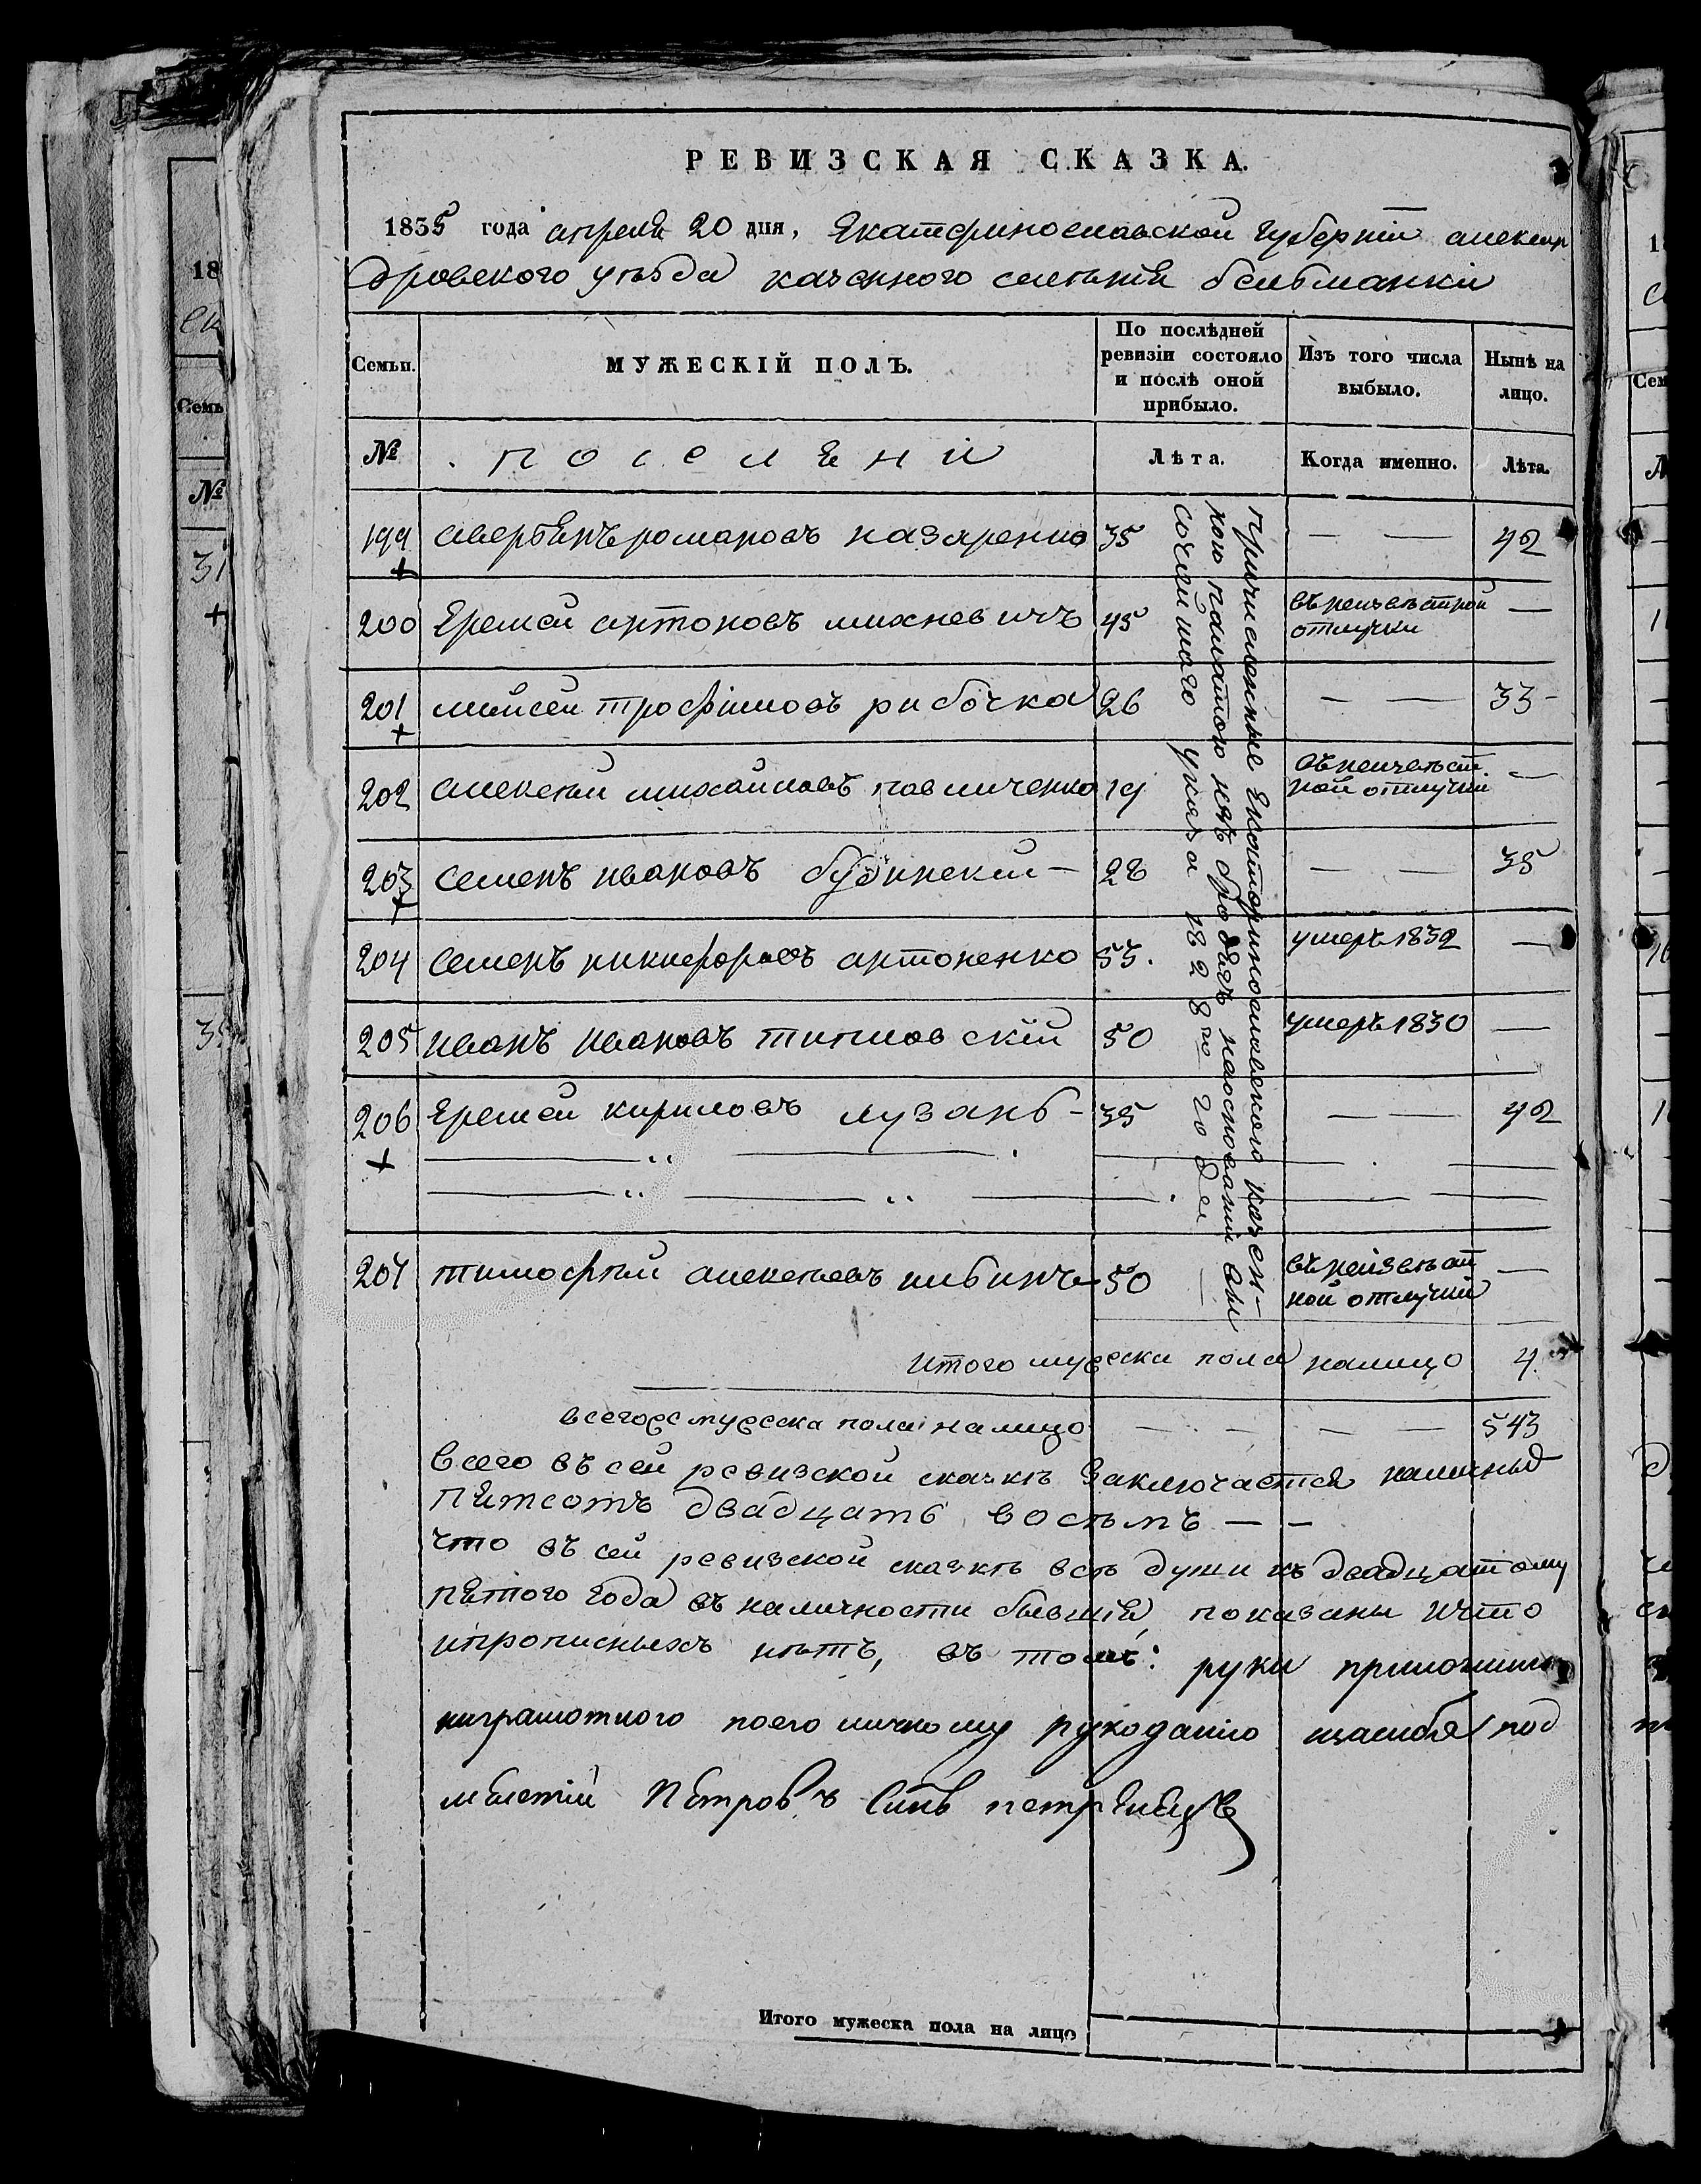 РЕВИЗСКАЯ СКАЗКА.
1835 года апреля 20 дня, Екатеринославской губернии александ
дровского уѣзда казенного селенія бельманки
Семьи.
МУЖЕСКІЙ ПОЛЪ.
По послѣдней ревизіи состояло и послѣ оной прибыло.
Изъ того числа выбыло.
Нынѣ на лицо.
№
поселяни
Лѣта.
Когда именно.
Лѣта.
199 аверьянъ романовъ назаренко 35 — — 42
200 Еремей антоновъ михневичъ 45 въ неизвѣстной отлучки —
201 мойсей трофимовъ рибочка 26 — — 33
202 алексѣй михайловъ павличенко 19 въ неизвѣст. ной отлучки —
203 семенъ ивановъ будинский 28 — — 35
204 семенъ никифоровъ антоненко 53. умеръ 1832 —
205 иванъ ивановъ типловский 50 умеръ 1830 —
206 Еремей кириловъ лузань 35 — — 42
207 тимофѣй алексѣевъ 50 въ неизвѣст ной отлучки —
причисленные Екатеринославского казен-
ною палатою изъ бродягъ наосновании вы
сочайшаго указа 1828го года
итого мужеска пола налицо 4
всегоже мужеска пола налицо — — — — 543
всего въ сей ревизской сказкѣ заключается наличныхъ
пятсотъ двадцать восьмъ — —
что въ сей ревизской сказкѣ всѣ души къ двадцатому
пятого года въ наличности бывшія показаны ичто
ипрописныхъ нѣтъ, въ томъ: руки приложили
играмотного поего личному рукоданію под
Петровъ Синъ
Итого мужеска пола на лицо
18
Семь
№
31
+
35